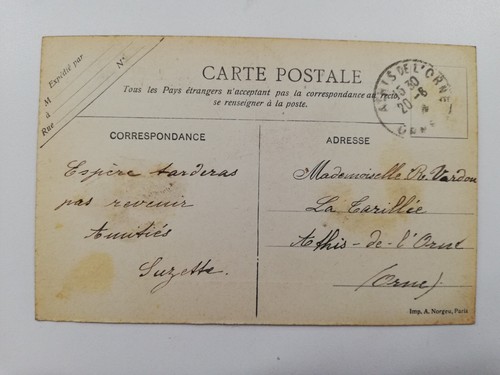 Expédié par
M
Rue
N°
CARTE POSTALE
Tous les Pays étrangers n'acceptant pas la correspondance au recto,
se renseigner à la poste.
ATHIS DE L'ORNE
15 30
20 -6
ORNE
CORRESPONDANCE
Espère tarderas
pas revenir
Amitiés
Suzette.
ADRESSE
Mademoiselle R. Vardon
La Carillée
Athis-de-l'Orne
(Orne)
Imp. A. Norgeu, Paris